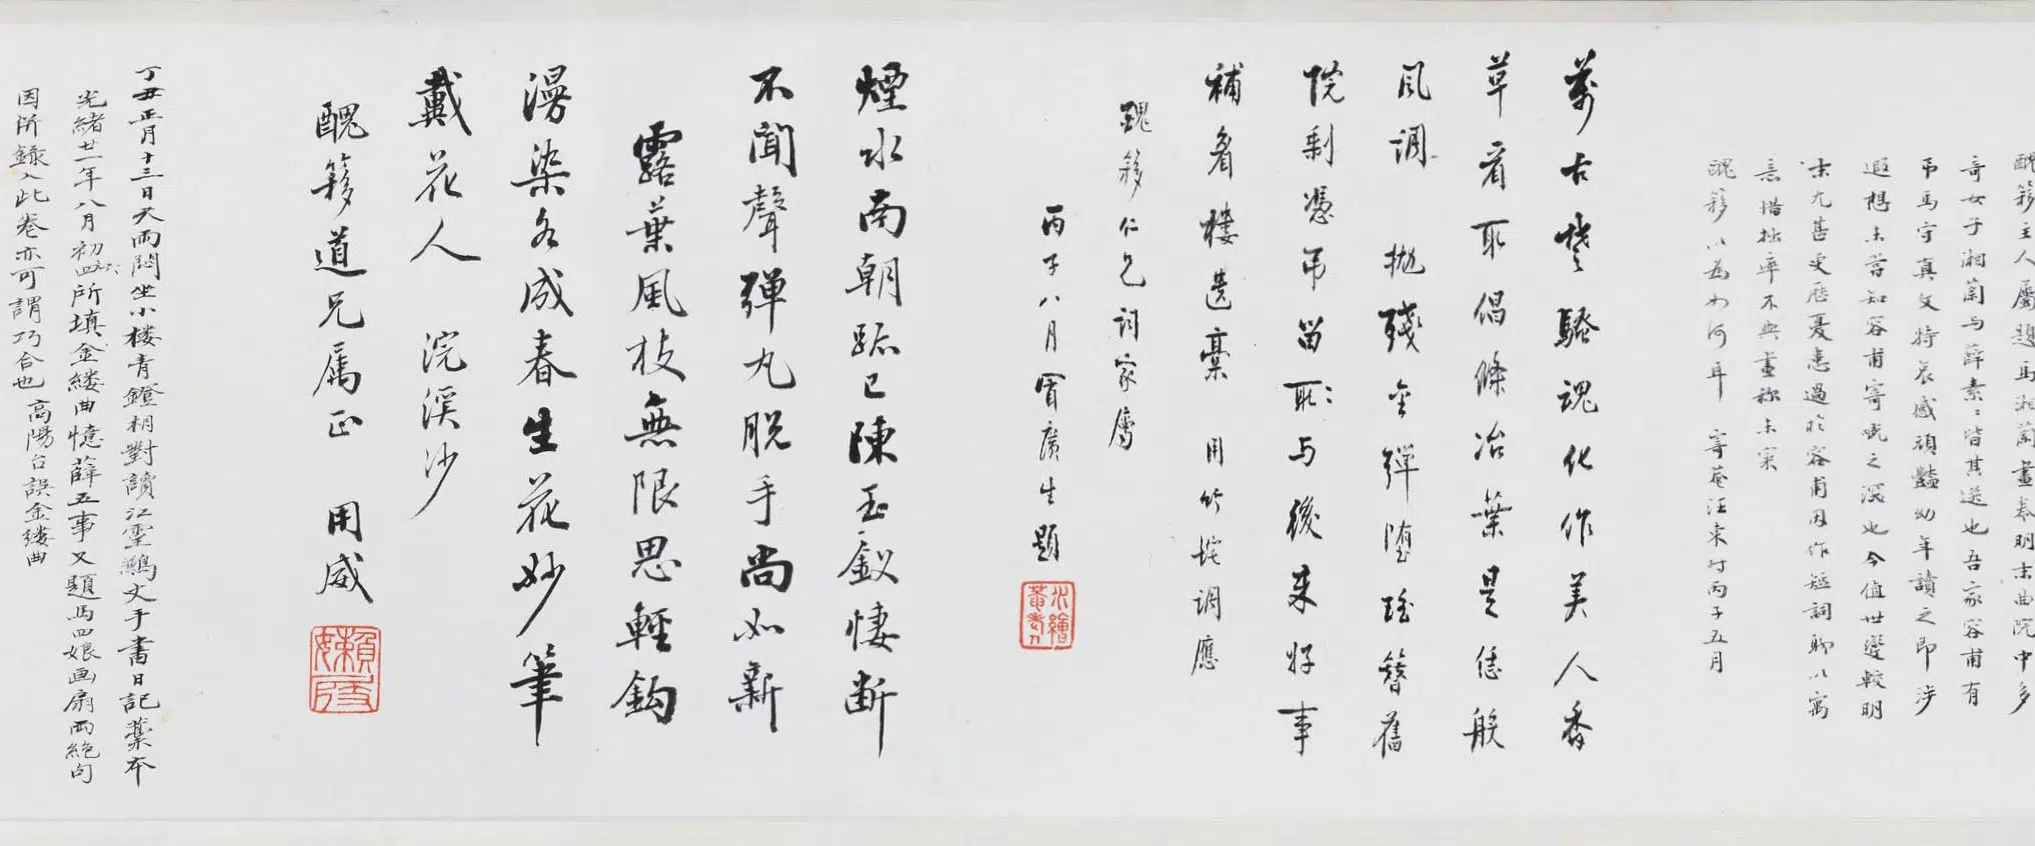 醜簃主人屬題馬湘蘭畫卷明末曲院中多
奇女子湘蘭与薛素素皆其選也吾家容甫有
弔馬守真文特哀感頑豔幼年讀之即涉
遐想未嘗知容甫寄慨之深也今值世變較明
末尤甚更歷憂患過於容甫因作短詞聊以寫
意惜拙率不與畫稱未審
醜簃以為如何耳 寄菴汪東於丙子五月
萬古楚騷魂化作美人香
草看取倡條冶葉是恁般
風調 拋殘金彈墮瑤簪舊
院剩憑弔留取取与後來好事
補眉樓遺稾 用竹垞調應
醜簃仁兄詞家屬
丙子八月冒廣生題
煙水南朝跡已陳玉釵悽斷
不聞聲彈丸脫手尚如新
露葉風枝無限思輕鈎
漫染各成春生花妙筆
戴花人 浣溪沙
醜簃道兄属正 用威
丁丑正月十三日大雨悶坐小樓青鐙相對讀江靈鶼丈手書日記藁本
光緒廿一年八月初四所填金縷曲憶薛五事又題馬四娘画扇兩絕句
因併錄入此卷亦可謂巧合也 高陽台誤金縷曲